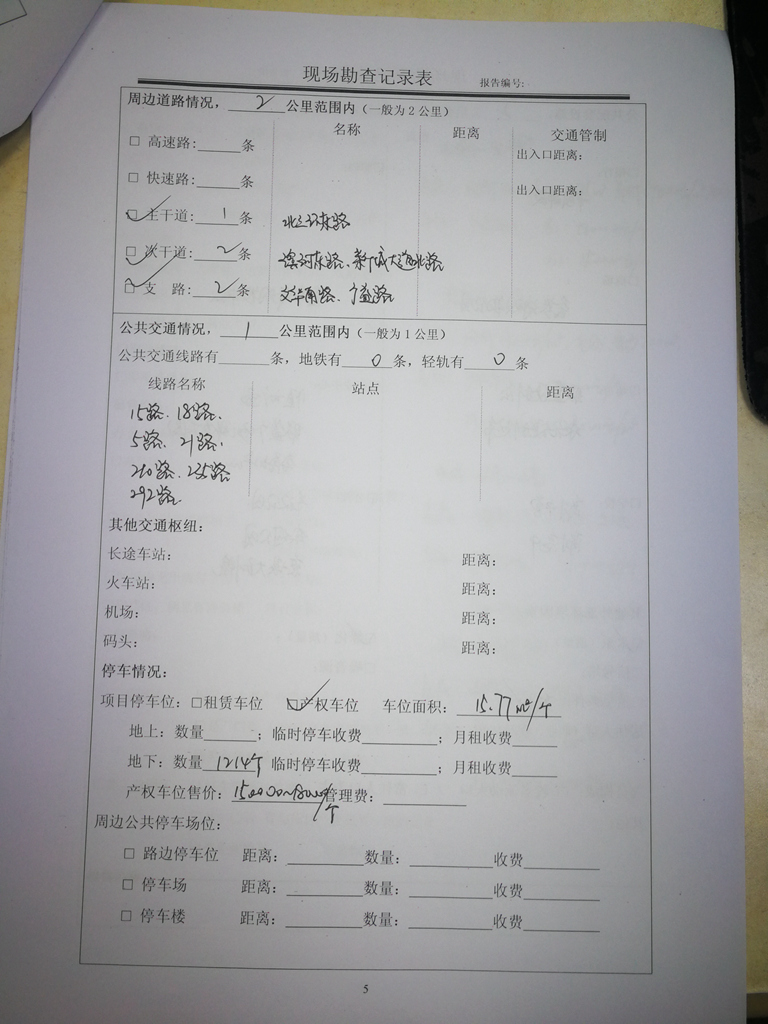 现场勘查记录表 报告编号:
周边道路情况，2公里范围内（一般为2公里）
名称 距离 交通管制
□ 高速路:____条 出入口距离：
□ 快速路:____条 出入口距离：
□ 主干道:1条 北三环东路
□ 次干道:2条 滨河东路、新城大道北路
□ 支 路:2条 文华南路、
公共交通情况，1公里范围内（一般为1公里）
公共交通线路有____条，地铁有0条，轻轨有0条
线路名称 站点 距离
15路、18路、
5路、21路、
210路、235路
292路
其他交通枢纽：
长途车站： 距离：
火车站： 距离：
机场： 距离：
码头： 距离：
停车情况：
项目停车位：□租赁车位 □产权车位 车位面积：15.77m²/个
地上：数量____；临时停车收费____；月租收费____
地下：数量1214个 临时停车收费____；月租收费____
产权车位售价：/个 管理费：____
周边公共停车场位：
□ 路边停车位 距离：____数量：____收费____
□ 停车场 距离：____数量：____收费____
□ 停车楼 距离：____数量：____收费____
5